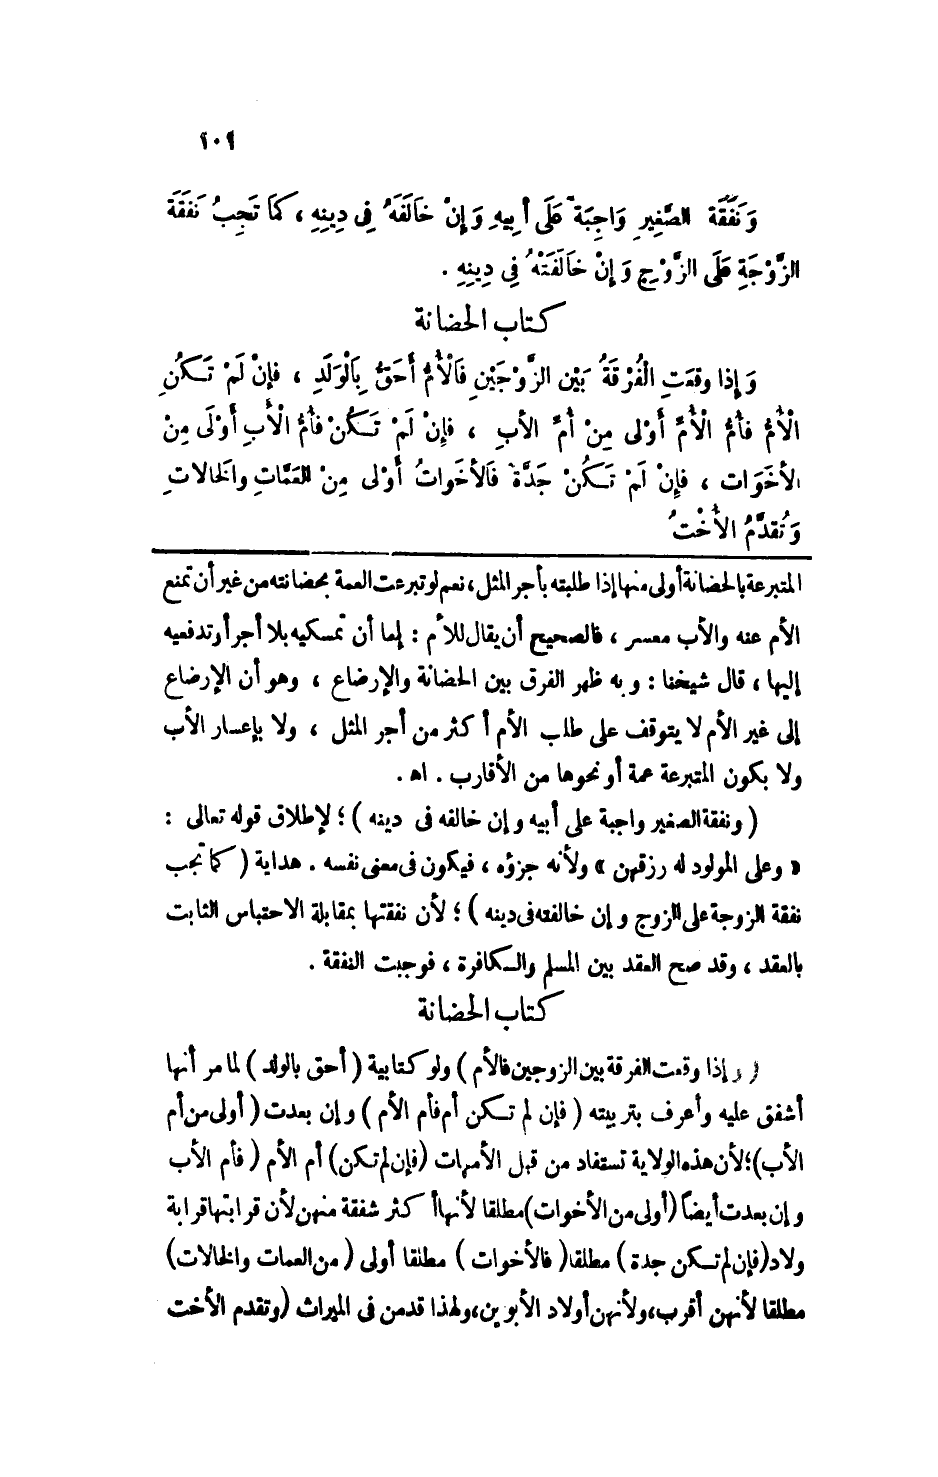 ١٠٩
وَنَفَقَةُ الصَّغِيرِ وَاجِبَةٌ عَلَى أَبِيهِ وَإِنْ خَالَفَهُ فِى دِينِهِ ، كَمَا تَجِبُ نَفَقَةُ
الزَّوْجَةِ عَلَى الزَّوْجِ وَإِنْ خَالَفَتْهُ فِى دِينِهِ .
كتاب الحضانة
وَإِذا وقعَتِ الْفُرْقَةُ بَيْنِ الزَّوْجَيْنِ فَالْأُمُّ أَحَقُّ بِالْوَلَدِ ، فإِنْ لَمْ تَكُنِ
الْأُمُّ فأُمُّ الْأُمِّ أَوْلى مِنْ أُمِّ الأبِ ، فإِنْ لَمْ تَكُنْ فأُمُّ الْأَبِ أَوْلَى مِنْ
الأخَوَات ، فإِنْ لَمْ تَكُنْ جَدَّةٌ فَالأخَواتُ أَوْلى مِنْ العَمَّاتِ والخالاتِ
وَتُقدَّمُ الأُخْتُ
المتبرعة بالحضانة أولى منها إذا طلبته بأجر المثل، نعم لو تبرعت العمة بحضانته من غير أن تمنع
الأم عنه والأب معسر ، فالصحيح أن يقال للأم : إما أن تمسكيه بلا أجر أو تدفعيه
إليها ، قال شيخنا : وبه ظهر الفرق بين الحضانة والإرضاع ، وهو أن الإرضاع
إلى غير الأم لا يتوقف على طلب الأم أكثر من أجر المثل ، ولا بإعسار الأب
ولا بكون المتبرعة عمة أو نحوها من الأقارب . اه .
( ونفقة الصغير واجبة على أبيه وإن خالفه فى دينه ) ؛ لإطلاق قوله تعالى :
« وعلى المولود له رزقهن » ولأنه جزؤه ، فيكون فى معنى نفسه . هداية ( كما تجب
نفقة الزوجة على الزوج وإن خالفته فى دينه ) ؛ لأن نفقتها بمقابلة الاحتباس الثابت
بالعقد ، وقد صح العقد بين المسلم والكافرة ، فوجبت النفقة .
كتاب الحضانة
( وإذا وقعت الفرقة بين الزوجين فالأم ) ولو كتابية ( أحق بالولد ) لما مر أنها
أشفق عليه وأعرف بتربيته ( فإن لم تكن أم فأم الأم ) وإن بعدت ( أولى من أم
الأب)؛ لأن هذه الولاية تستفاد من قبل الأمهات (فإن لم تكن) أم الأم ( فأم الأب
وإن بعدت أيضاً (أولى من الأخوات) مطلقا لأنها أكثر شفقة منهن لأن قرابتها قرابة
ولاد(فإن لم تكن جدة ) مطلقا( فالأخوات ) مطلقا أولى ( من العمات والخالات)
مطلقا لأنهن أقرب، ولأنهن أولاد الأبوين، ولهذا قدمن فى الميراث (وتقدم الأخت